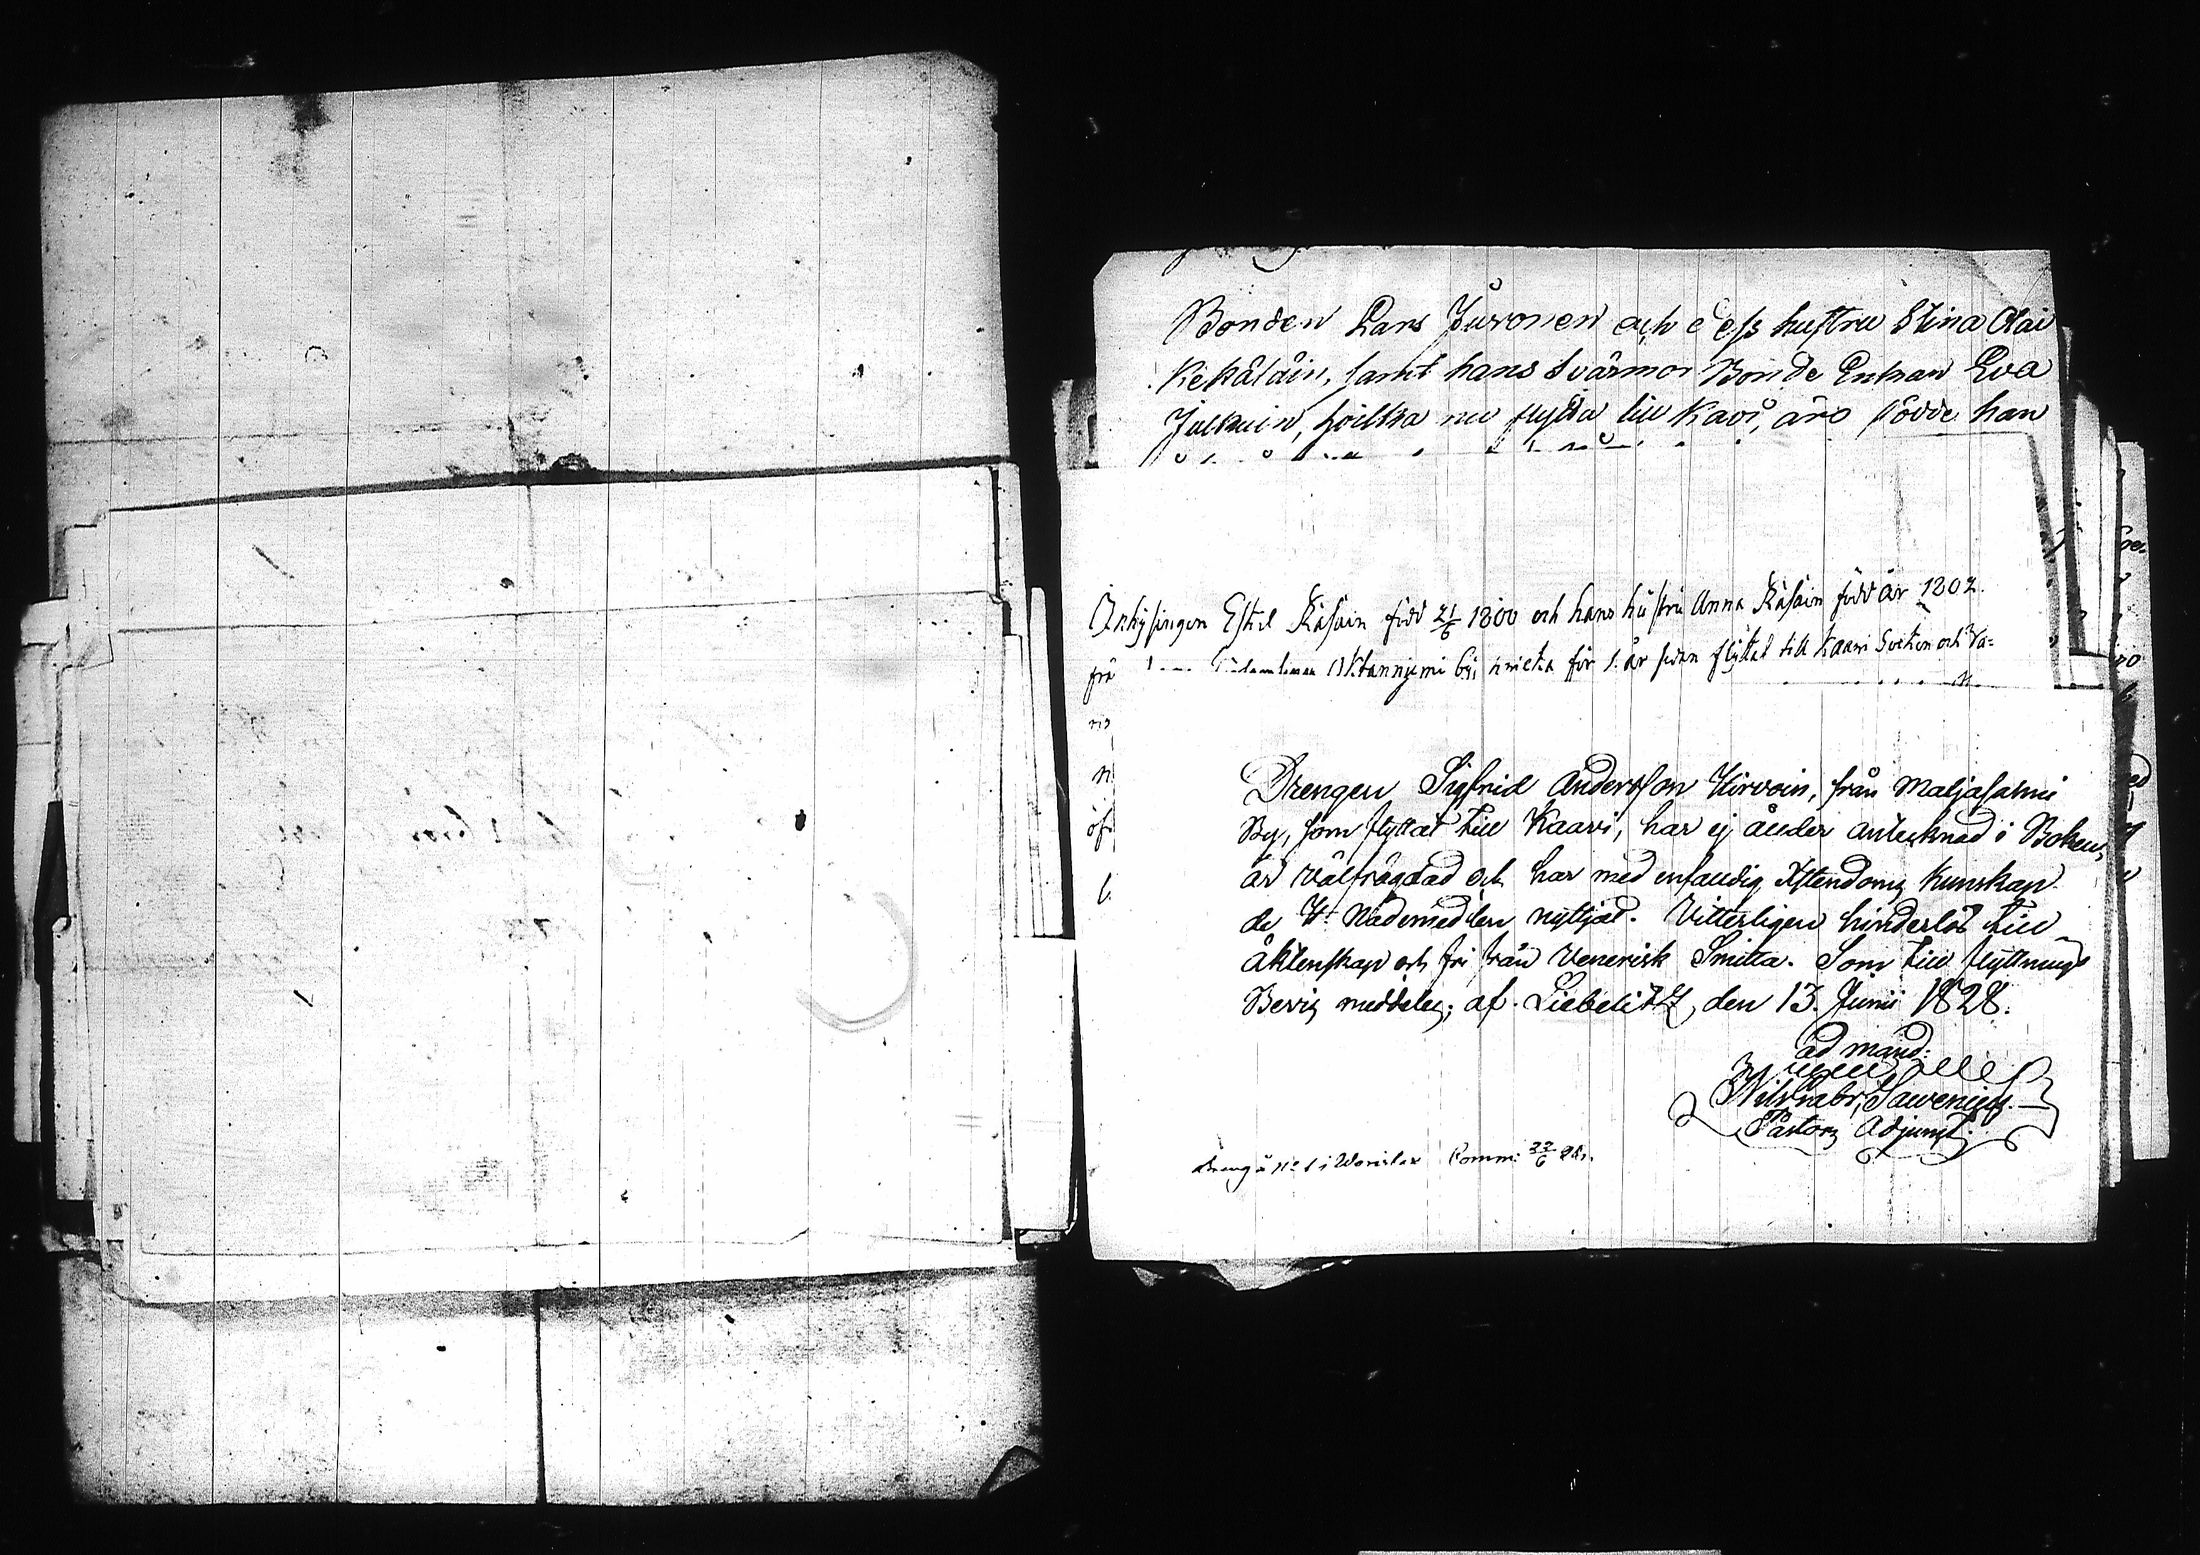 Bonden Lars Juronen och dess hustru Stina Olai
Kekäläin, samt hans Svärmor Bonde Enkan Eva
Julkuin, hvilka nu flytta till Kavi, äro födde han
Inhysingen Eskil Räsäin född 21/6 1800 och hans hustru Anna Räsäin född år 1802
frå by för 1. år sedan flyttat till Kaavi Socken och Va=
Drengen Sigfrid Andersson Hirvoin, från Maljasalmi
By, som flyttat till Kaavi, har ej ålder antecknad i Boken,
är välfrägdad och har med enfaldig Xstendoms kunskap
de H. Nådemedlen nyttjat. Vitterligen hinderlös till
äktenskap och fri från Venerisk Smitta. Som till flyttnings
Bevis meddeles; af Liebelitz den 13. Junii 1828.
ad mand:
Pastors Adjunct.
dreng å No 1 i Comm: 22/6 28.